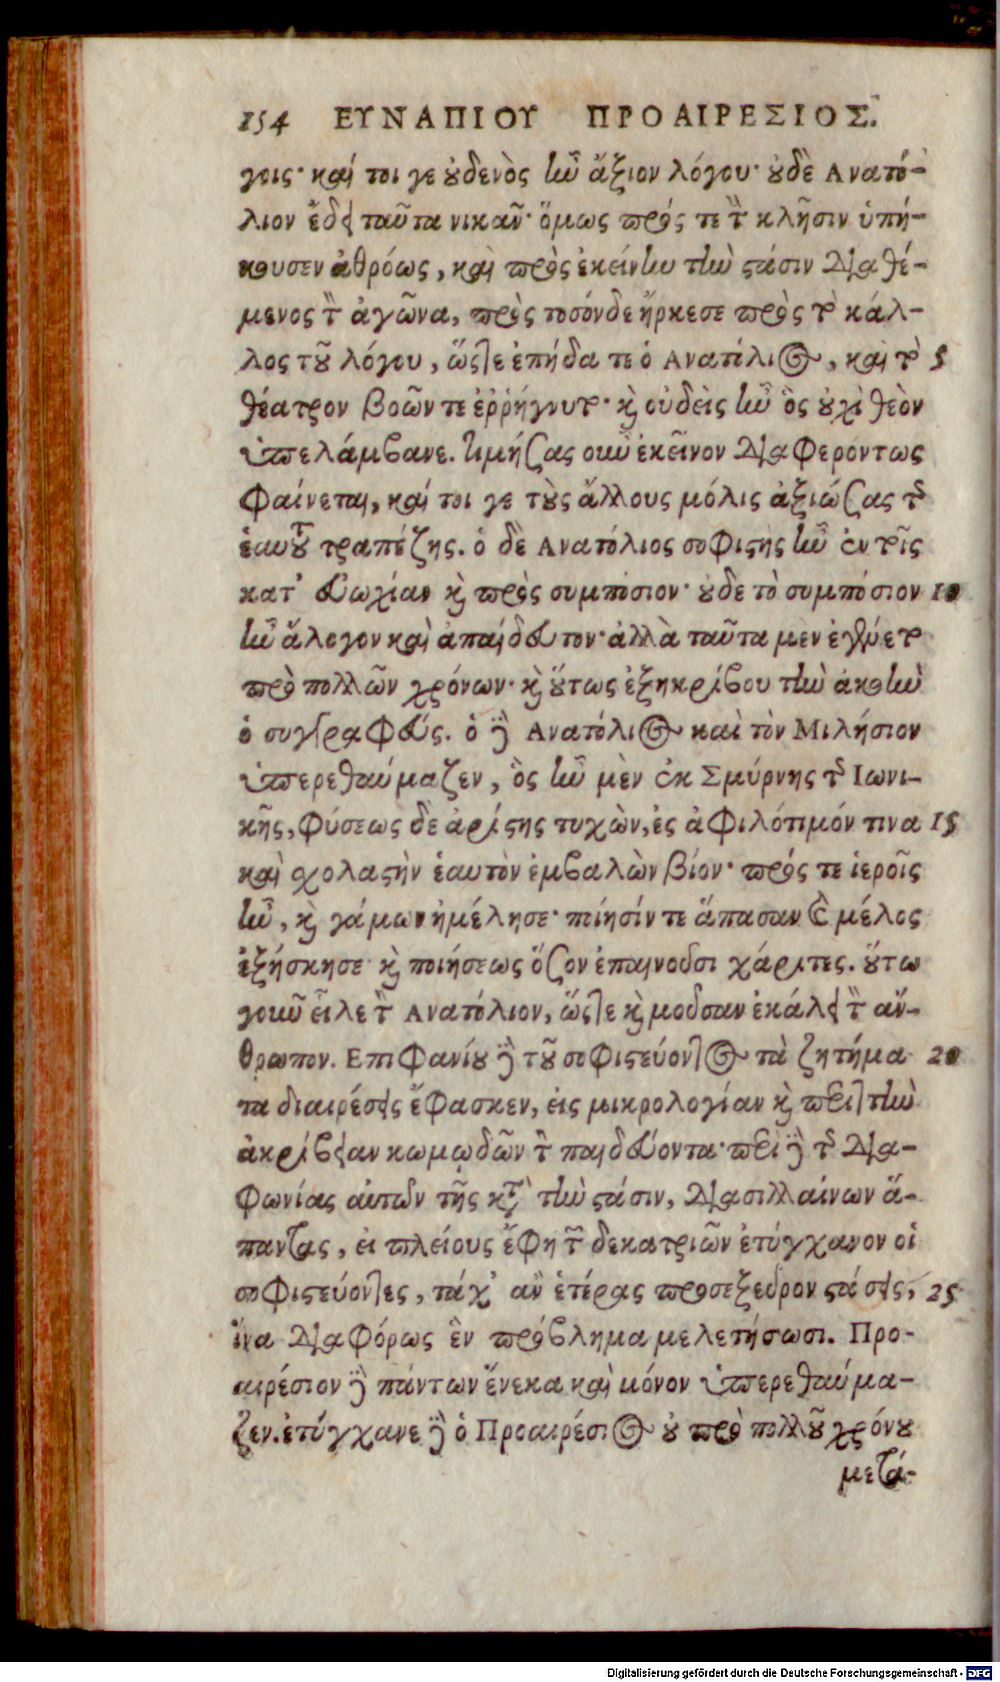 154 ΕΥΝΑΠΙΟΥ ΠΡΟΑΙΡΕΣΙΟΣ.
γοις· καί τοι γε οὐδενὸς ἦν ἄξιον λόγου· οὐδὲ Ανατό-
λιον ἔδει ταῦτα νικᾶν· ὅμως πρός τε τὴν κλῆσιν ὑπή-
κουσεν ἀθρόως, καὶ πρὸς ἐκείνην τὴν στάσιν διαθέ-
μενος τὸν ἀγῶνα, πρὸς τοσόνδε ἤρκεσε πρὸς τὸ κάλ-
λος τοῦ λόγου, ὥστε ἐπήδα τε ὁ Ανατόλιος, καὶ τὸ 5
θέατρον βοῶν τε ἐῤῥήγνυτο· καὶ οὐδεὶς ἦν ὃς οὐχὶ θεὸν
ὑπελάμβανε. τιμήσας οὖν ἐκεῖνον διαφερόντως
φαίνεται, καί τοι γε τοὺς ἄλλους μόλις ἀξιώσας τῆς
ἑαυτοῦ τραπέζης. ὁ δὲ Ανατόλιος σοφιστὴς ἦν ἐν τοῖς
κατ' εὐωχίαν καὶ πρὸς συμπόσιον· οὐδε τὸ συμπόσιον 10
ἦν ἄλογον καὶ ἀπαίδευτον· ἀλλὰ ταῦτα μὲν ἐγένετο
πρὸ πολλῶν χρόνων· καὶ οὕτως ἐξηκρίβου τὴν ἀκοὴν
ὁ συγγραφεύς. ὁ δὲ Ανατόλιος καὶ τὸν Μιλήσιον
ὑπερεθαύμαζεν, ὃς ἦν μὲν ἐκ Σμύρνης τῆς Ιωνι-
κῆς, φύσεως δὲ ἀρίστης τυχὼν, ἐς ἀφιλότιμόν τινα 15
καὶ σχολαστὴν ἑαυτὸν ἐμβαλὼν βίον· πρός τε ἱεροῖς
ἦν, καὶ γάμων ἠμέλησε· ποίησίν τε ἅπασαν καὶ μέλος
ἐξήσκησε καὶ ποιήσεως ὅσον ἐπαινοῦσι χάριτες. οὕτω
γοῦν εἷλε τὸν Ανατόλιον, ὥστε καὶ μοῦσαν ἐκάλει τὸν ἄν-
θρωπον. Επιφανίου δὲ τοῦ σοφιστεύοντος τὰ ζητήμα 20
τα διαιρέσεις ἔφασκεν, εἰς μικρολογίαν καὶ περιττὴν
ἀκρίβειαν κωμῳδῶν τὸν παιδεύοντα· περὶ δὲ τῆς δια-
φωνίας αὐτῶν τῆς κατὰ τὴν στάσιν, διασιλλαίνων ἅ-
παντας, εἰ πλείους ἔφη τῶν δεκατριῶν ἐτύγχανον οἱ
σοφιστεύοντες, τάχ' ἂν ἑτέρας προσεξεῦρον στάσεις, 25
ἵνα διαφόρως ἓν πρόβλημα μελετήσωσι. Προ-
αιρέσιον δὲ πάντων ἕνεκα καὶ μόνον ὑπερεθαύμα-
ζεν. ἐτύγχανε δὲ ὁ Προαιρέσιος οὐ πρὸ πολλοῦ χρόνου
μετά-
Digitalisierung gefördert durch die Deutsche Forschungsgemeinschaft - DFG